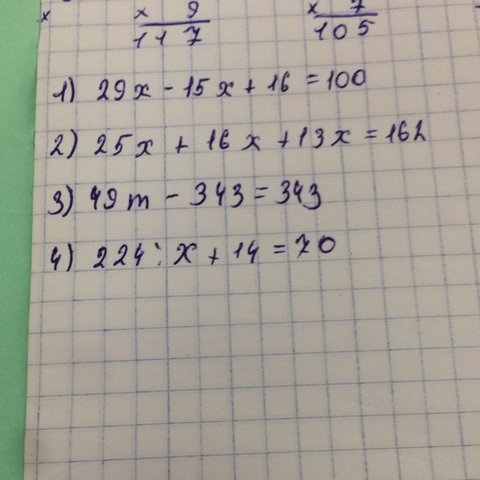 × 9 × 7
117 105
×
1) 29x - 15x + 16 = 100
2) 25x + 16x + 13x = 162
3) 49m - 343 = 343
4) 224 : x + 14 = 70